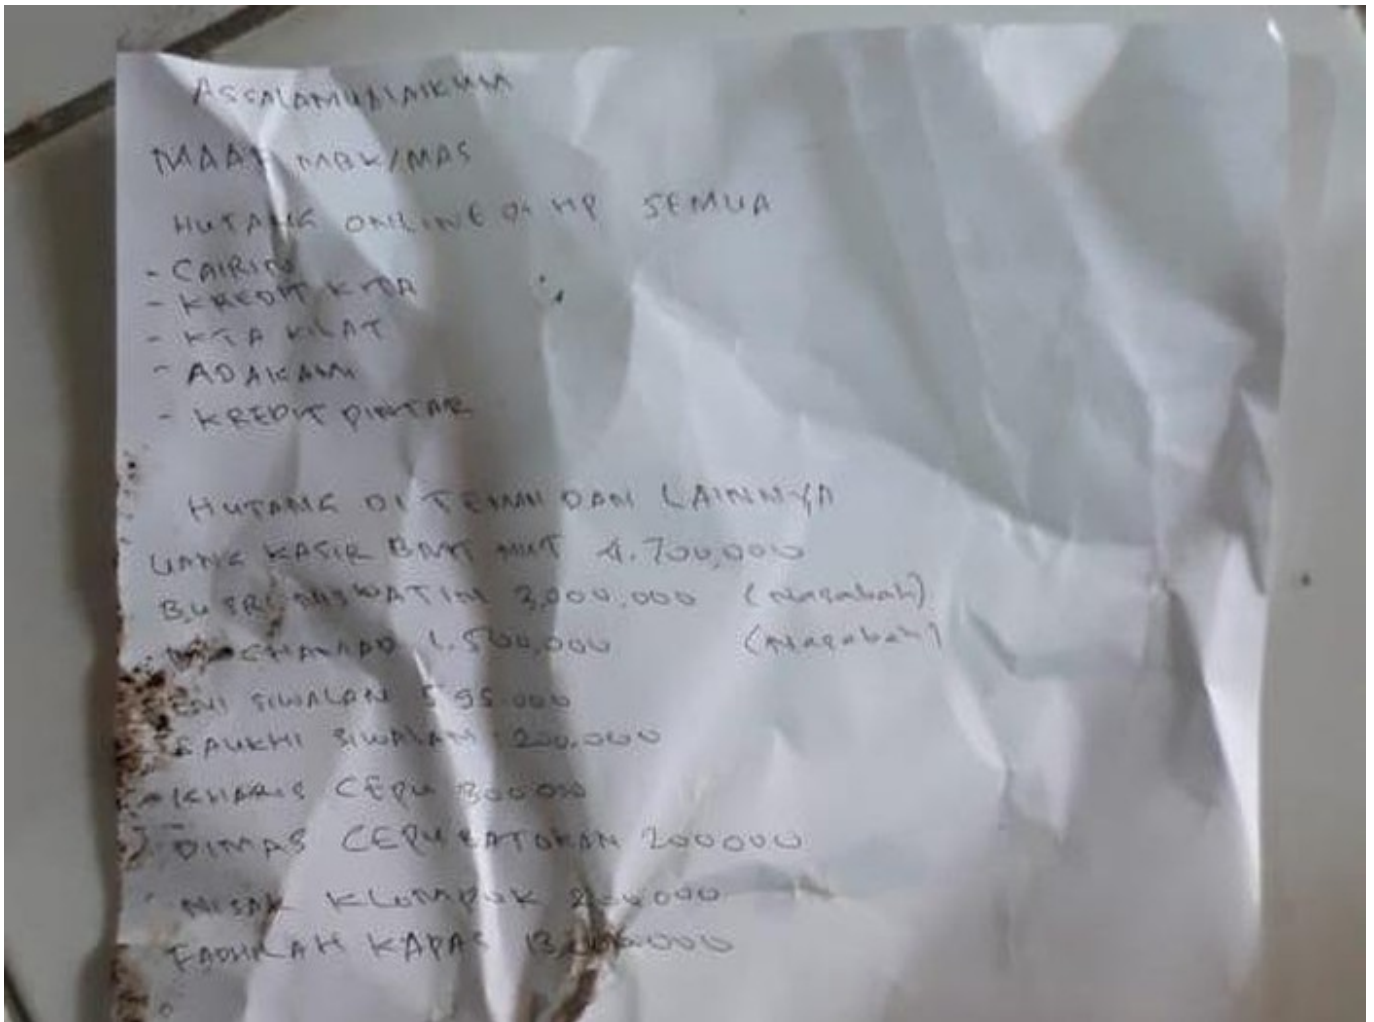 ASSALAMUALAIKUM
MAAF MBK/MAS
HUTANG ONLINE DI HP SEMUA
- CAIRIN
- KREDIT KITA
- KTA KILAT
- ADAKAMI
- KREDIT PINTAR
HUTANG DI TEMAN DAN LAINNYA
UANG KASIR BANK 4.700,000
BU SRI 3,000,000 (Nasabah)
1.500,000 (Nasabah)
SIWALAN 595.000
SAUKHI SIWALAN 200.000
KHARIS CEPU 300000
DIMAS CEPU BATOKAN 200000
NISAK KLOMPOK 200000
FADHILAH KAPAS